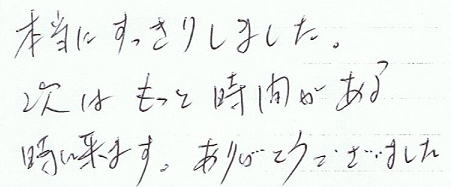 本当にすっきりしました。
次はもっと時間がある
時に来ます。ありがとうございました